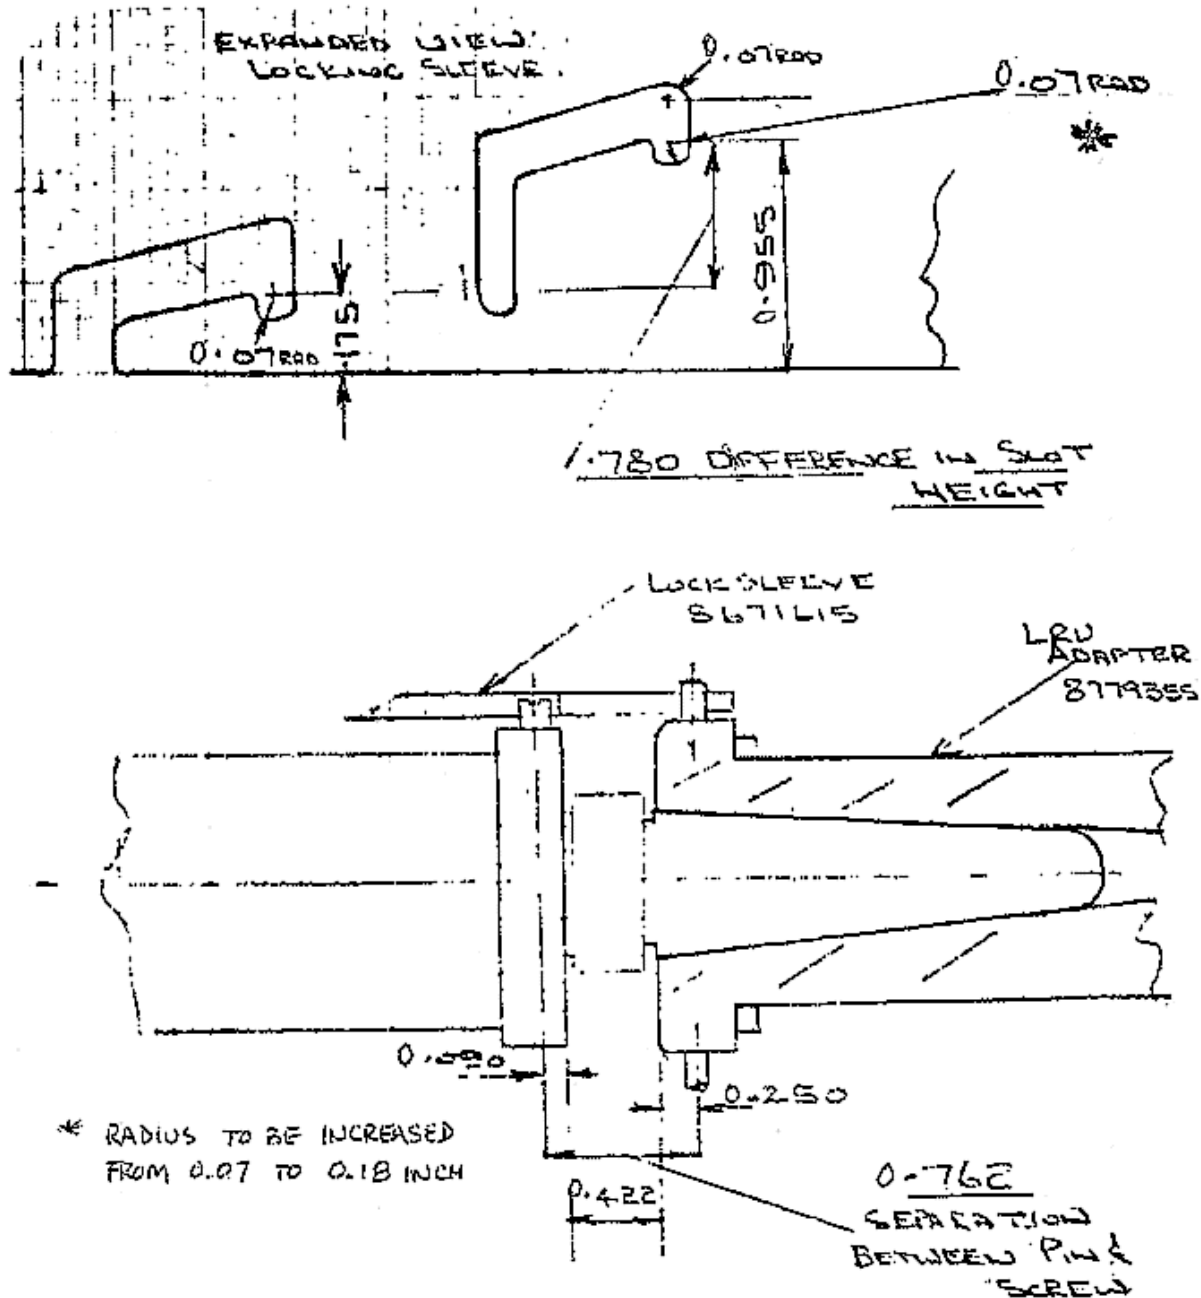 EXPANDED VIEW
LOCKING SLEEVE.
0.07RAD
0.07RAD
*
0.955
0.07RAD
.175
.780 DIFFERENCE IN SLOT
HEIGHT
LOCKSLEEVE
8671L15
LRU
ADAPTER
8779355
0.090
0.250
* RADIUS TO BE INCREASED
FROM 0.07 TO 0.18 INCH
0.422
0.762
SEPARATION
BETWEEN PIN &
SCREW